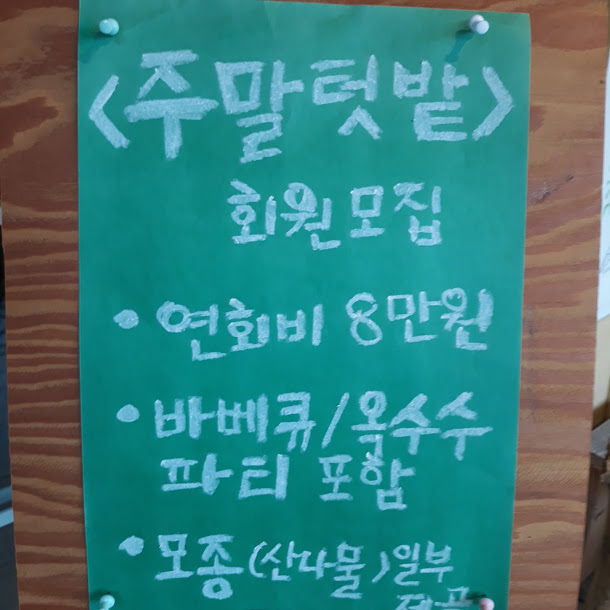 <주말텃밭>
회원모집
• 연회비 8만원
• 바베큐/옥수수
파티 포함
• 모종(산나물)일부